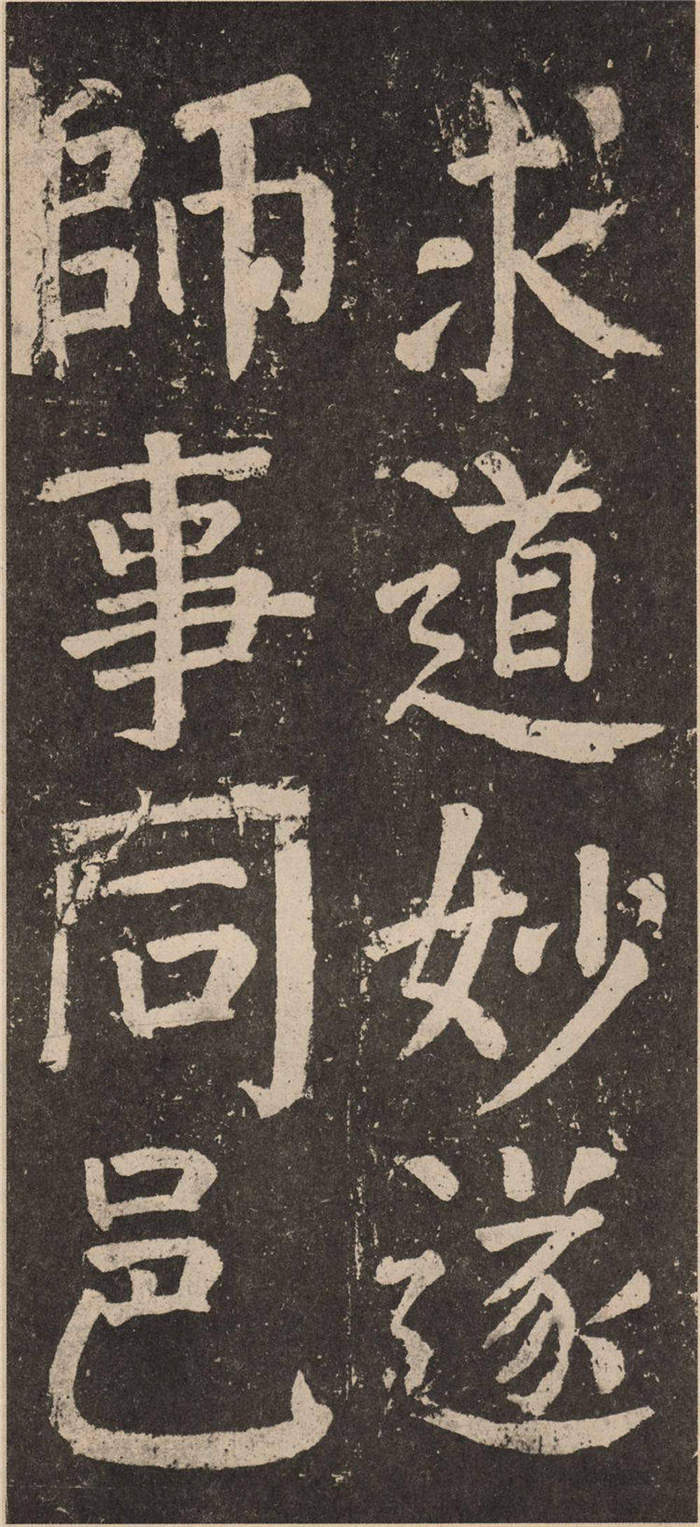 求道妙遂
師事同邑